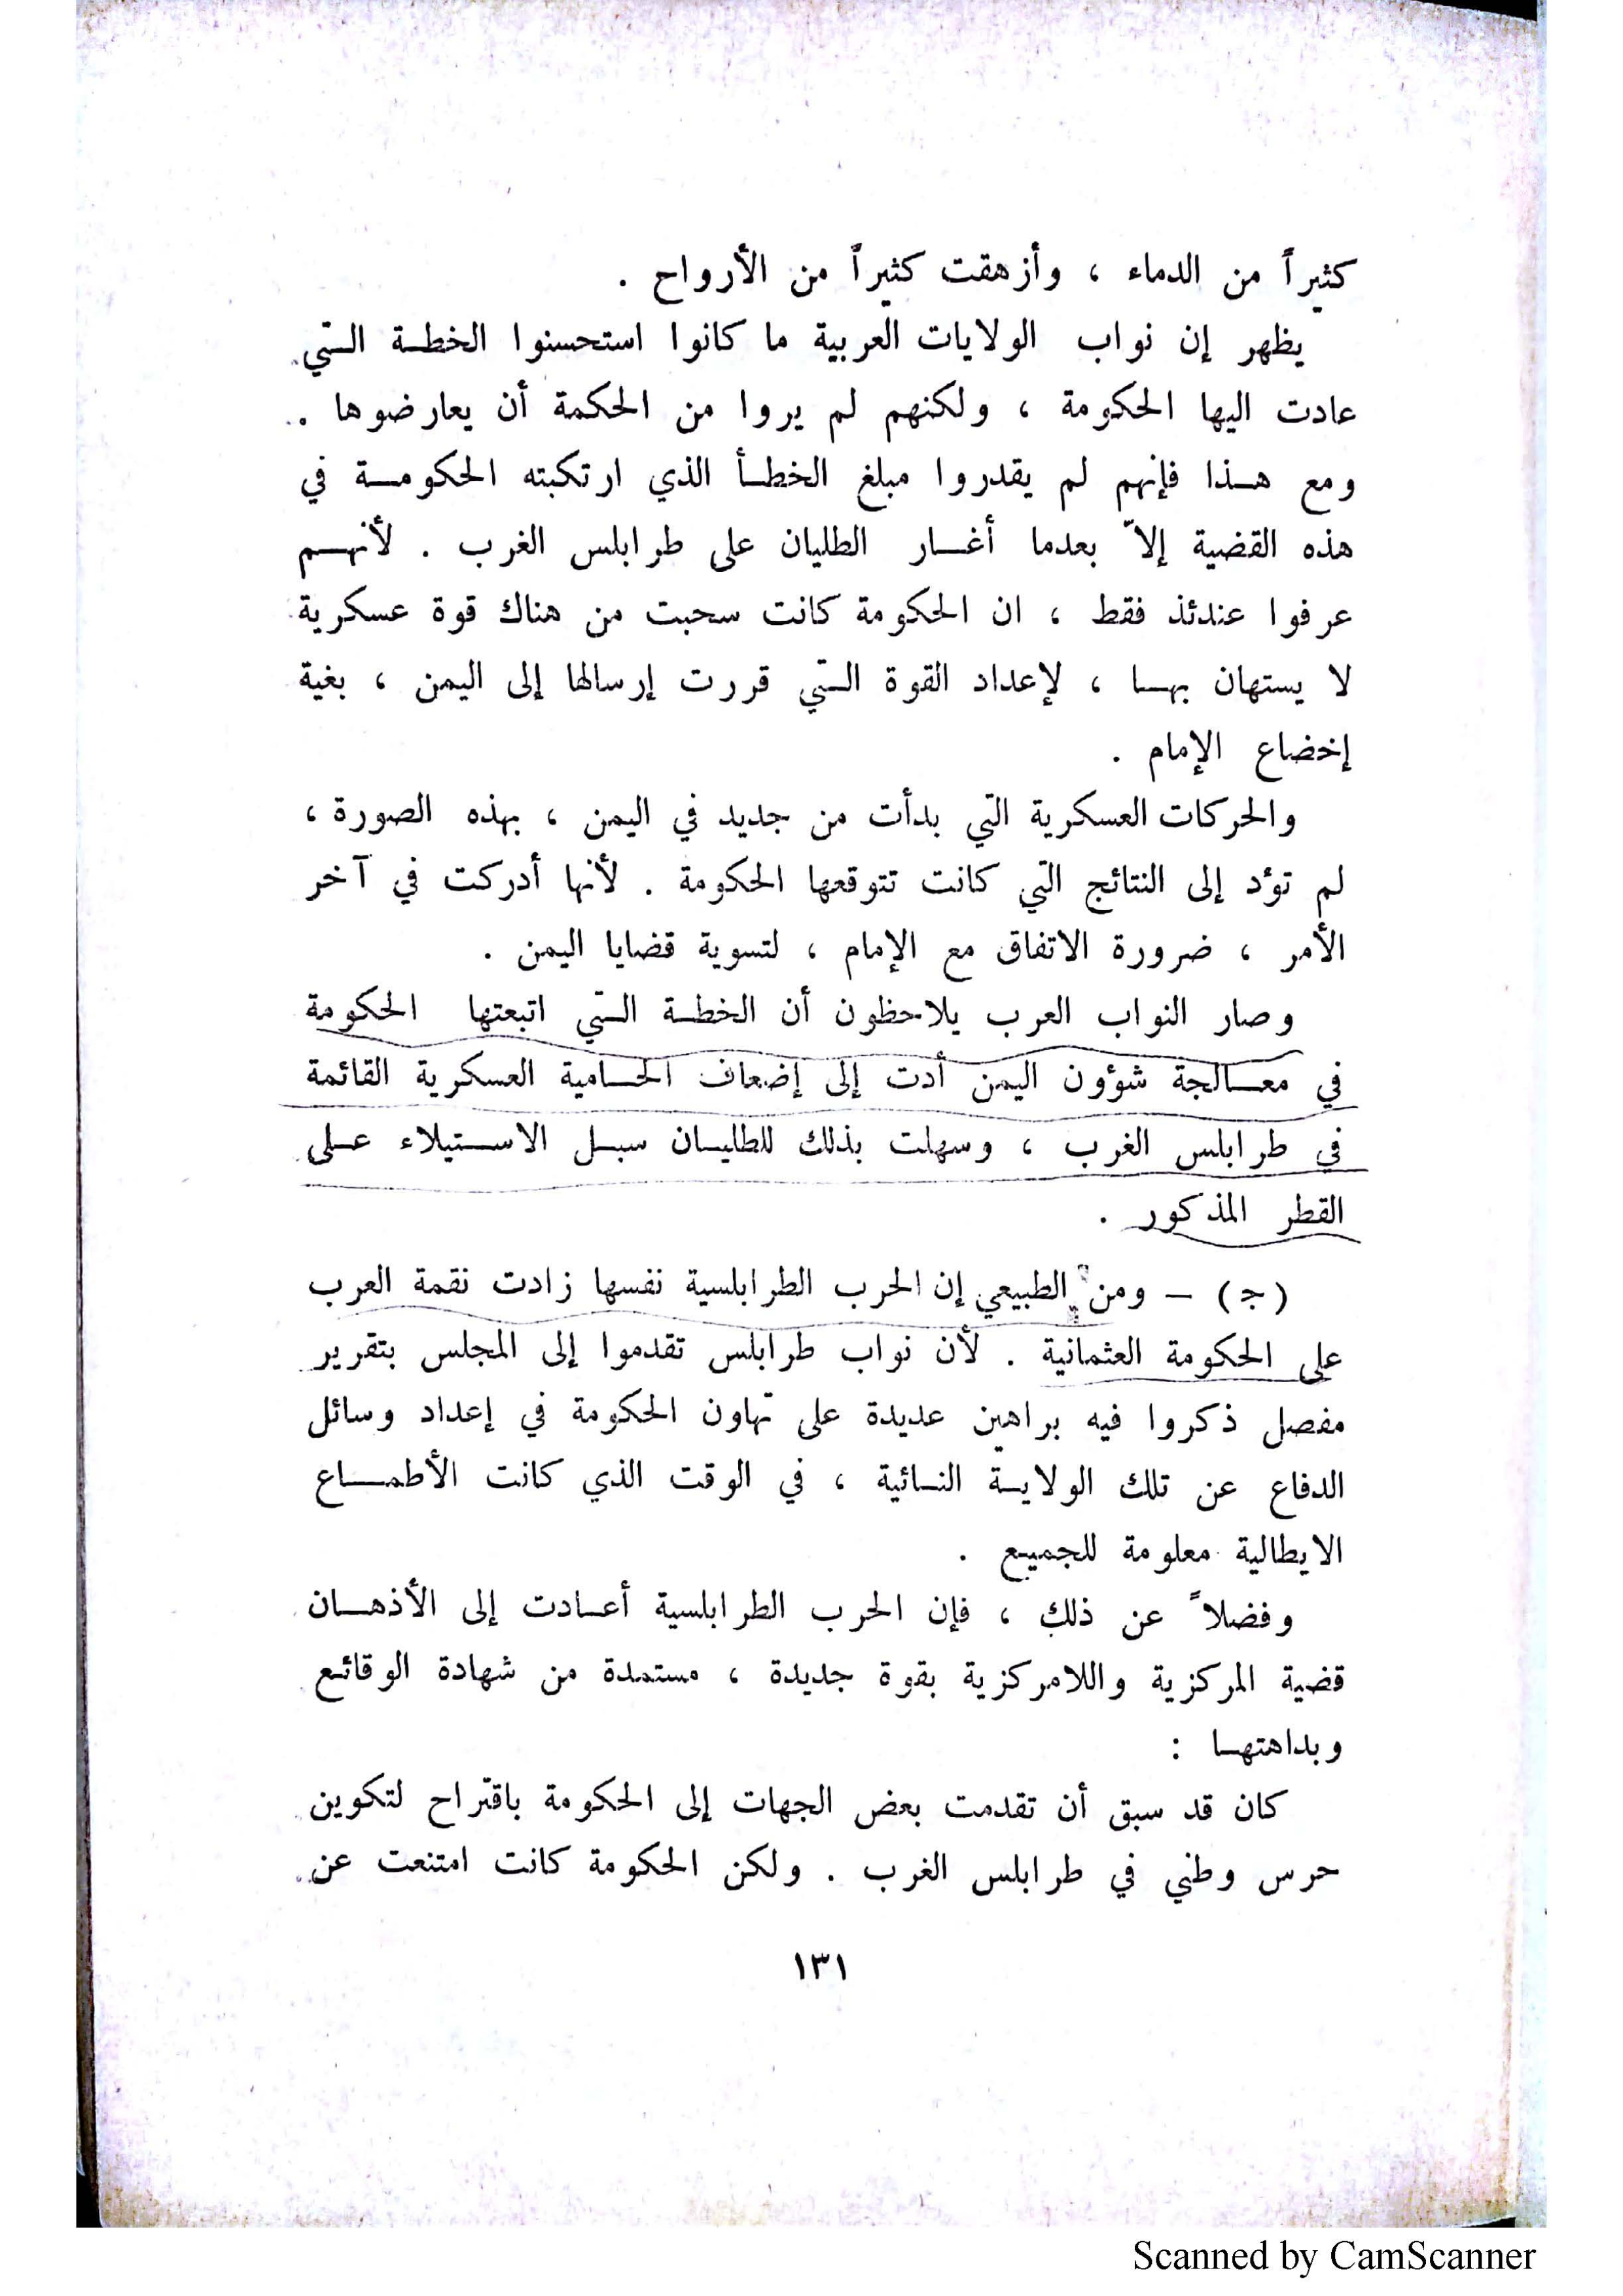 كثيراً من الدماء ، وأزهقت كثيراً من الأرواح .
يظهر إن نواب الولايات العربية ما كانوا استحسنوا الخطـة الـتي
عادت اليها الحكومة ، ولكنهم لم يروا من الحكمة أن يعارضوها .
ومع هـذا فإنهم لم يقدروا مبلغ الخطـأ الذي ارتكبته الحكومـة في
هذه القضية إلاّ بعدما أغـار الطليان على طرابلس الغرب . لأنهـم
عرفوا عندئذ فقط ، ان الحكومة كانت سحبت من هناك قوة عسكرية
لا يستهان بهـا ، لإعداد القوة الـتي قررت إرسالها إلى اليمن ، بغية
إخضاع الإمام .
والحركات العسكرية التي بدأت من جديد في اليمن ، بهذه الصورة ،
لم تؤد إلى النتائج التي كانت تتوقعها الحكومة . لأنها أدركت في آخر
الأمر ، ضرورة الاتفاق مع الإمام ، لتسوية قضايا اليمن .
وصار النواب العرب يلاحظون أن الخطـة الـتي اتبعتها الحكومة
في معـالجة شؤون اليمن أدت إلى إضعاف الحـامية العسكرية القائمة
في طرابلس الغرب ، وسهلت بذلك للطليـان سبـل الاسـتيلاء عـلى
القطر المذكور .
(ج) – ومن الطبيعي إن الحرب الطرابلسية نفسها زادت نقمة العرب
على الحكومة العثمانية . لأن نواب طرابلس تقدموا إلى المجلس بتقرير
مفصل ذكروا فيه براهين عديدة على تهاون الحكومة في إعداد وسائل
الدفاع عن تلك الولايـة النـائية ، في الوقت الذي كانت الأطمـاع
الايطالية معلومة للجميع .
وفضلاً عن ذلك ، فإن الحرب الطرابلسية أعـادت إلى الأذهـان
قضية المركزية واللامركزية بقوة جديدة ، مستمدة من شهادة الوقائع
وبداهتهـا :
كان قد سبق أن تقدمت بعض الجهات إلى الحكومة باقتراح لتكوين
حرس وطني في طرابلس الغرب . ولكن الحكومة كانت امتنعت عن
١٣١
Scanned by CamScanner